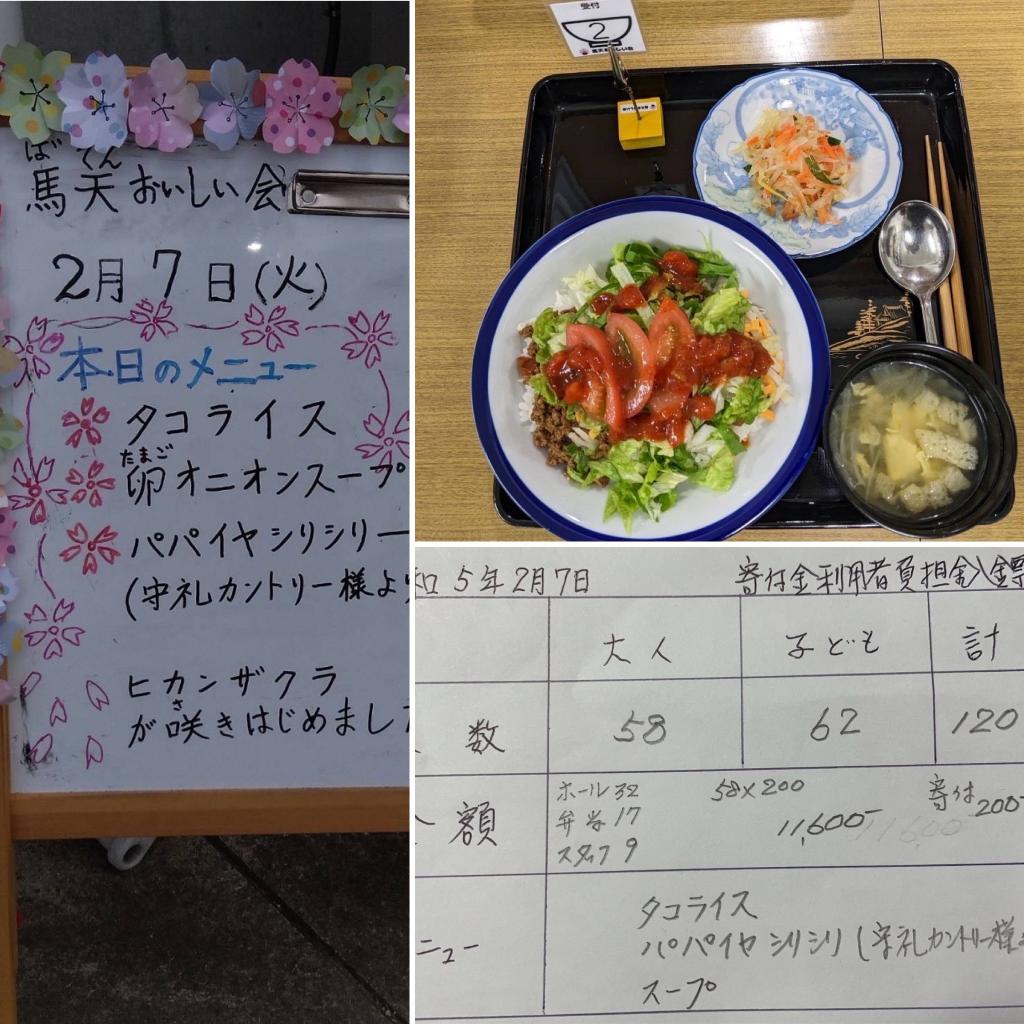 ば くん
馬天おいしい会
2月7日(火)
本日のメニュー
タコライス
たまご
卵オニオンスープ
パパイヤシリシリー
(守礼カントリー様よ
ヒカンザクラ
さ
が咲きはじめまし
受付
2
馬天おいしい会
和5年2月7日 寄付金利用者負担金入金票
大人 子ども 計
数 58 62 120
額 ホール32 58×200 寄付
弁当17 11,600- 11,600 200-
スタッフ9
ニュー タコライス
パパイヤシリシリ(守礼カントリー様
スープ